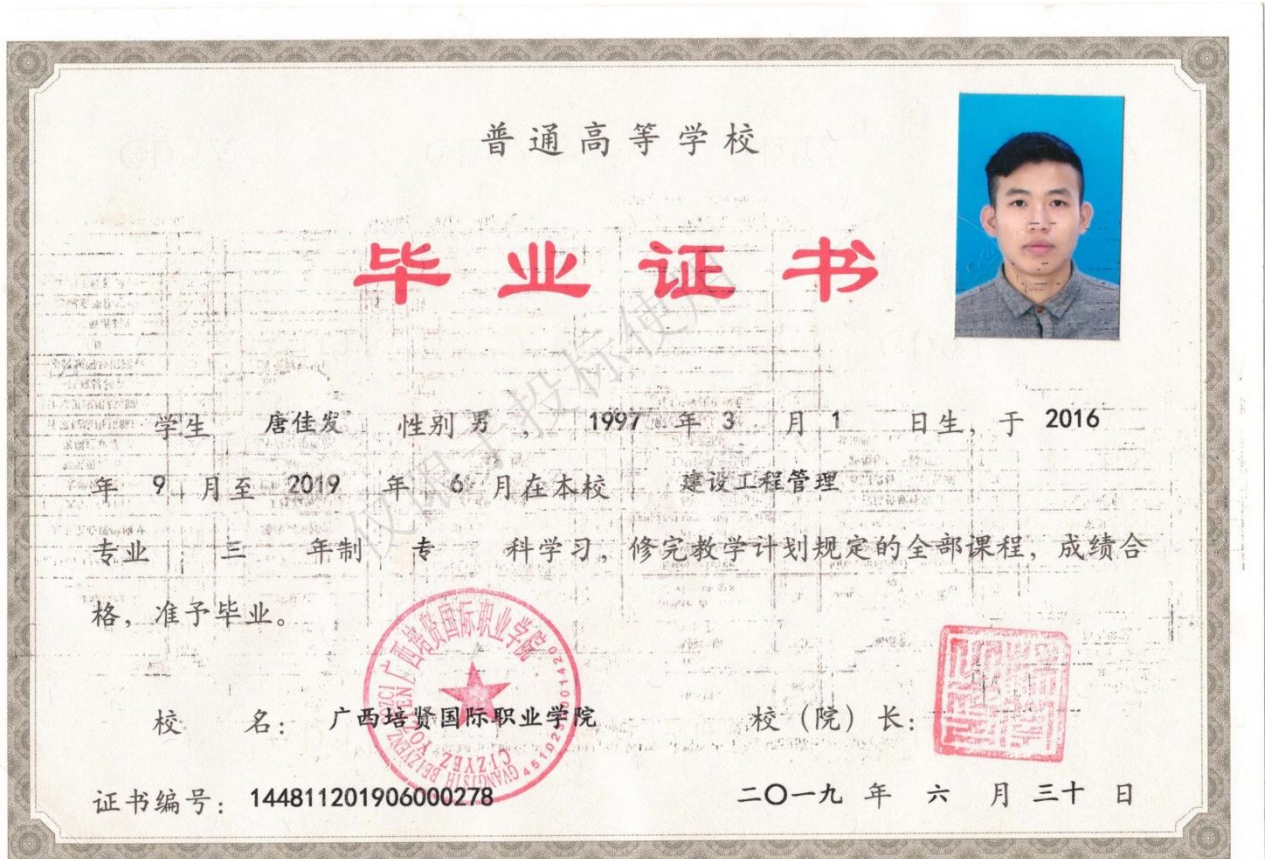 普通高等学校
毕业证书
学生 唐佳发 性别 男 , 1997 年 3 月 1 日生, 于 2016
年 9 月至 2019 年 6 月在本校 建设工程管理
专业 三 年制 专 科学习, 修完教学计划规定的全部课程, 成绩合
格, 准予毕业。
仅限于投标使用
广西培贤国际职业学院
校 名: 广西培贤国际职业学院 校（院）长:
证书编号: 144811201906000278 二〇一九 年 六 月 三十 日